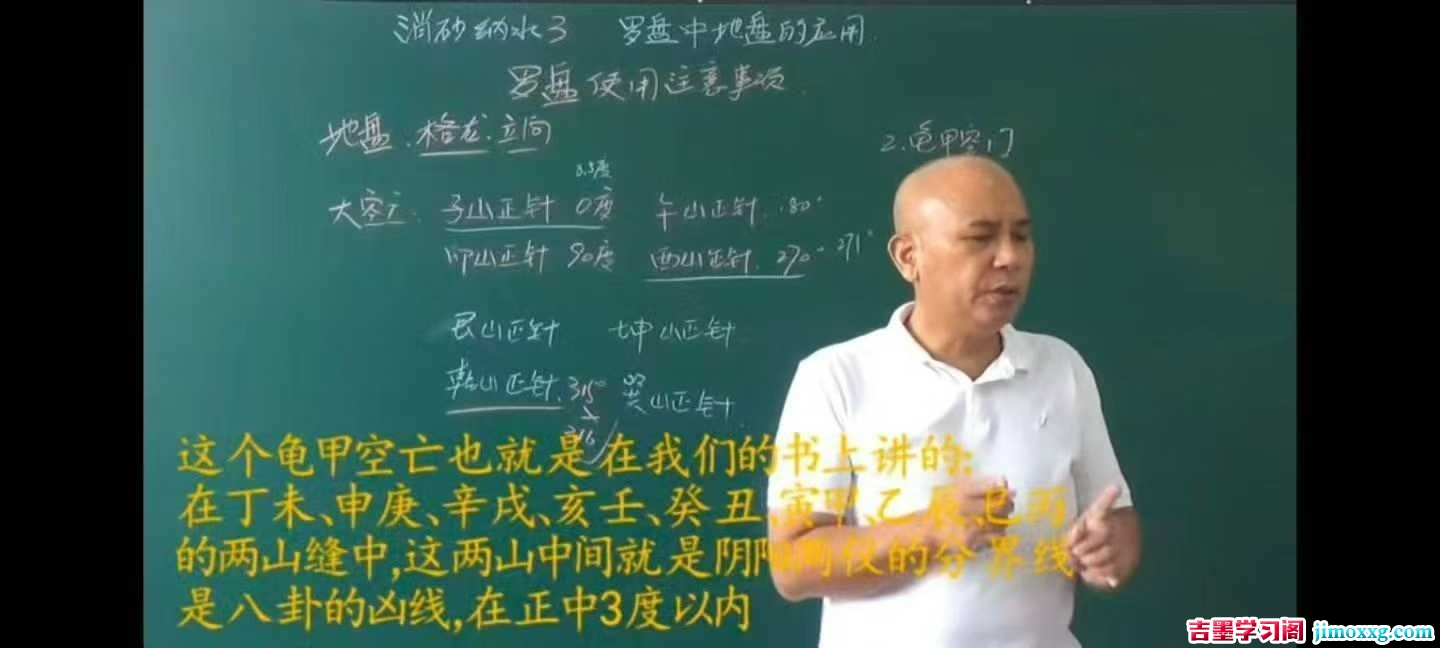 消砂纳水3 罗盘中地盘的应用.
罗盘使用注意事项.
地盘.格龙.立向
2.龟甲空门
3.5度
大空亡. 子山正针 0度 午山正针.180°
卯山正针 90度 酉山正针. 270-271°
艮山正针 坤山正针
乾山正针.315° 巽山正针.
316
这个龟甲空亡也就是在我们的书上讲的:
在丁未、申庚、辛戌、亥壬、癸丑、寅甲、乙辰、巳丙
的两山缝中,这两山中间就是阴阳两仪的分界线
是八卦的凶线,在正中3度以内
吉墨学习阁 jimoxxg.com